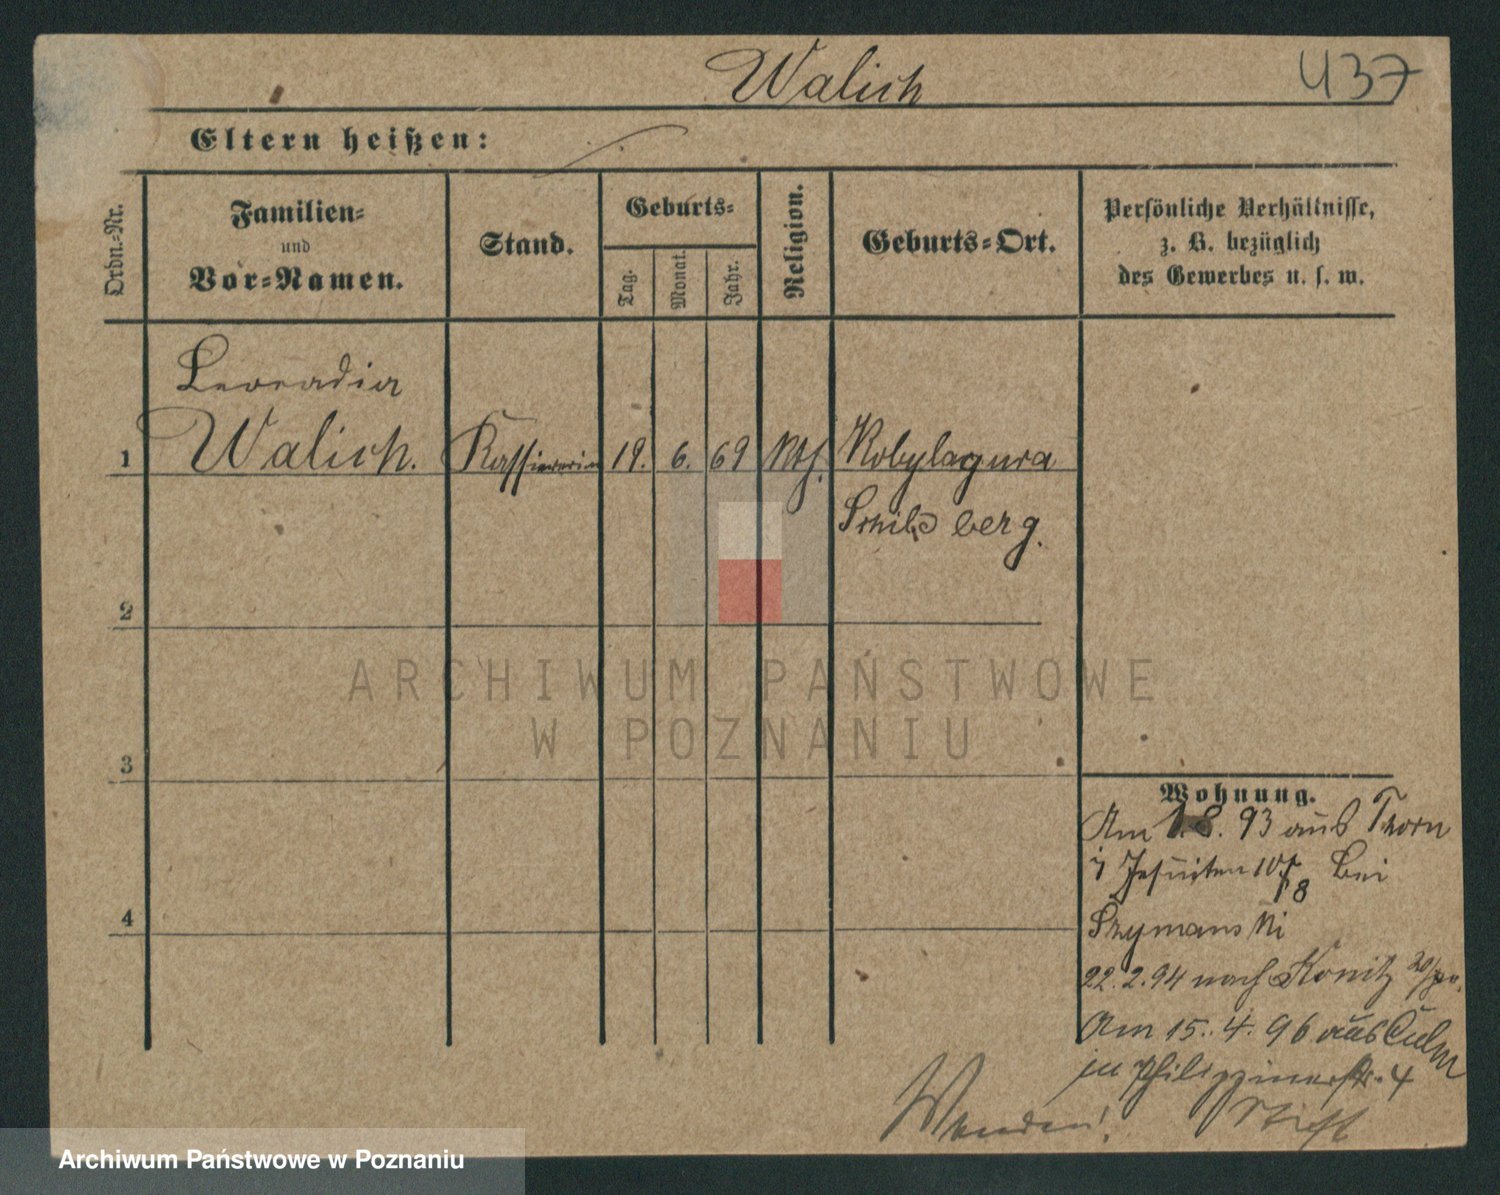 Walich
437
Eltern heißen:
Ordn.-Nr.
Familien-
und
Vor-Namen.
Stand.
Geburts-
Tag.
Monat.
Jahr.
Religion.
Geburts-Ort.
Persönliche Verhältnisse,
z. B. bezüglich
des Gewerbes u. s. w.
Leocadia
1 Walich. Kassiererin 19. 6. 69 Kth. Kobylagura
Schildberg.
2
3
4
ARCHIWUM PAŃSTWOWE
W POZNANIU
Wohnung.
Am 1.8. 93 aus Thorn
Jesuiten bei
Szymanski
22.2.94 nach Konitz
Am 15.4.96 aus Culm
zu Philippinerstr. 4
Stift
Wenden!
Archiwum Państwowe w Poznaniu